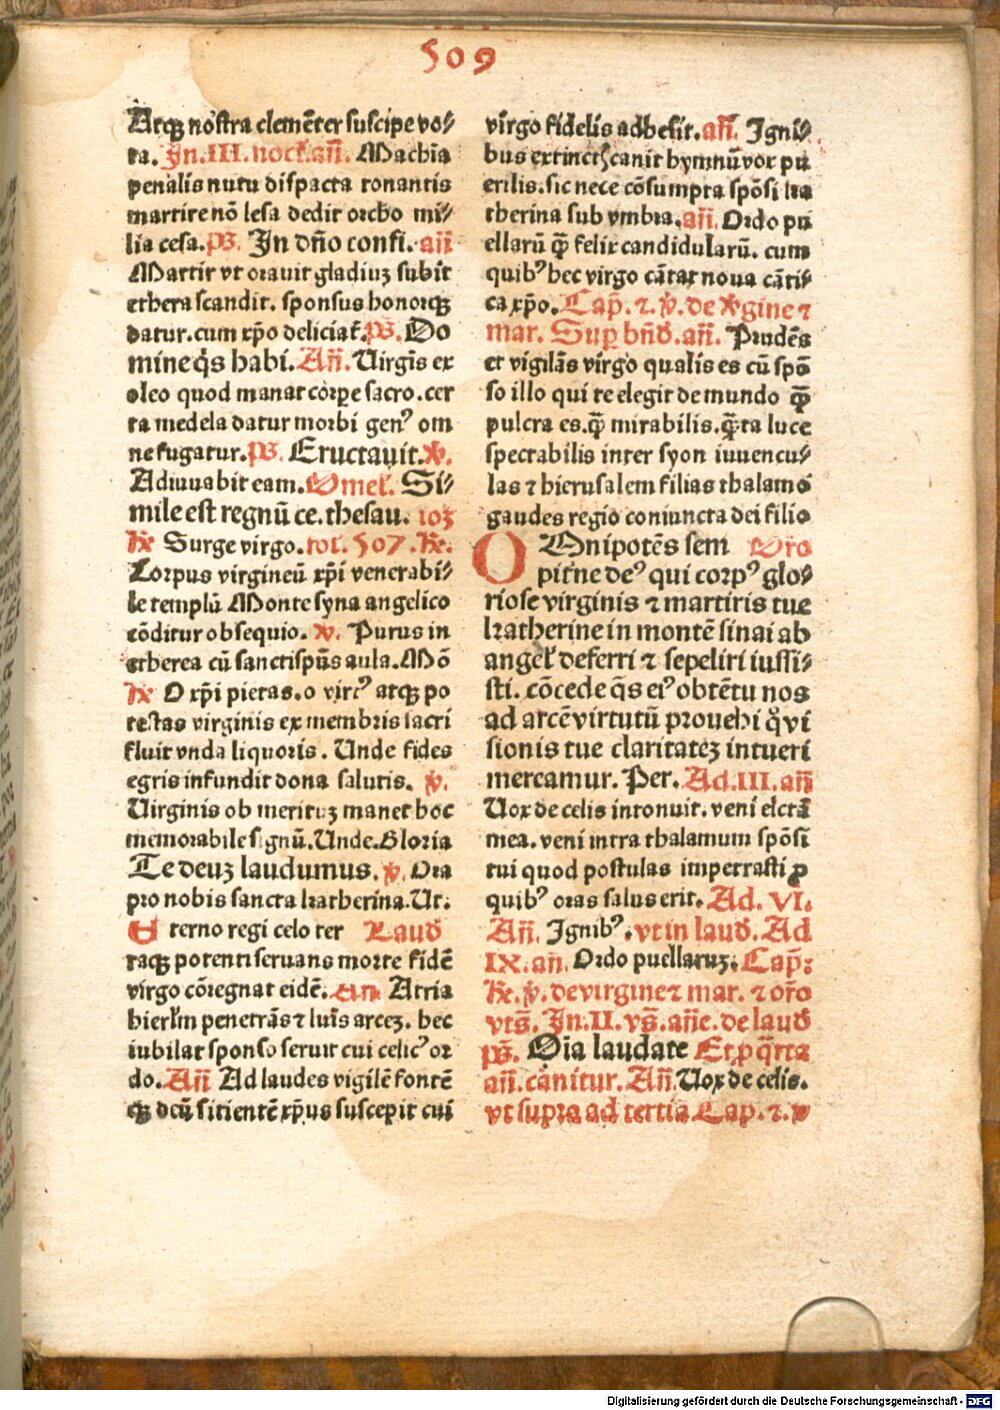 509
Atqꝫ nostra clemēter suscipe vo⸗
ta. In.III.noct̄.añ. Machīa
penalis nutu dispacta tonantis
martire nō lesa dedit orcho mi⸗
lia cesa.p̄s. In dño confi. añ
Martir vt orauit gladiuꝫ subit
ethera scandit. sponsus honorqꝫ
datur.cum xp̄o deliciat̄.p̄s. Do
mine q̇s habi. Añ. Uirgīs ex
oleo quod manat corpe sacro.cer
ta medela datur morbi genꝰ om
ne fugatur.p̄s. Eructauit. ℣.
Adiuuabit eam. Omel̄. Si⸗
mile est regnū ce. thesau. 103
℟ Surge virgo. fol. 507. ℟.
Corpus virgineū xp̄i venerabi⸗
le templū Monte syna angelico
cōditur obsequio. ℣. Purus in
etherea cū sanctis pūs aula. Mō
℟ O xp̄i pietas. o virtꝰ atqꝫ po
testas virginis ex membris sacri
fluit vnda liquoris. Unde fides
egris infundit dona salutis. ℣.
Uirginis ob merituꝫ manet hoc
memorabile signū. Unde. Gloria
Te deuꝫ laudumus. ℣. Ora
pro nobis sancta katherina. Ut.
E terno regi celo ter Laud̄
raqꝫ potenti seruans morte fidē
virgo cōregnat eidē. An̄ Atria
hierl̄m penetrās ⁊ luīs arceꝫ. hec
iubilat sponso seruit cui celicꝰ or
do. Añ Ad laudes vigilē fontē
qꝫ deū sitientē xp̄us suscepit cui
virgo fidelis adhesit. añ. Igni⸗
bus extinctꝭ canit hymnū vox pu
erilis. sic nece cōsumpta spōsi ka
therina sub vmbra. añ. Ordo pu
ellarū q̄ꝫ felix candidularū. cum
quibꝰ hec virgo cātat noua cāti⸗
ca xp̄o. Cap̄. ⁊. ℣. de v̄gine ⁊
mar. Sup bn̄d̄. añ. Prudēs
et vigilās virgo qualis es cū spō
so illo qui te elegit de mundo q̄ꝫ
pulcra es. q̄ꝫ mirabilis. q̄ꝫ ta luce
spectabilis inter syon iuuencu⸗
las ⁊ hierusalem filias thalamo
gaudes regio coniuncta dei filio
O Mnipotēs sem Oro
pit̄ne deꝰ qui corpꝰ glo⸗
riose virginis ⁊ martiris tue
katherine in montē sinai ab
angel̄ deferri ⁊ sepeliri iussi⸗
sti. cōcede q̄s eiꝰ obtētu nos
ad arcē virtutū prouehi q̇ vi
sionis tue claritateꝫ intueri
mereamur. Per. Ad.III.añ
Uox de celis intonuit. veni elctā
mea. veni intra thalamum spōsi
tui quod postulas impetrasti ꝓ
quibꝰ oras salus erit. Ad. VI.
Añ. Ignibꝰ. vt in laud̄. Ad
IX. an̄. Ordo puellaruꝫ. Cap̄:
℟. ℣. de virgine ⁊ mar. ⁊ oro
vts̄. In. II. vs̄. añe. de laud̄
p̄s. Oīa laudate Et ꝓ q̄rta
añ. canitur. Añ. Uox de celis.
vt supra ad tertia Cap. ⁊. ℣
Digitalisierung gefördert durch die Deutsche Forschungsgemeinschaft - DFG